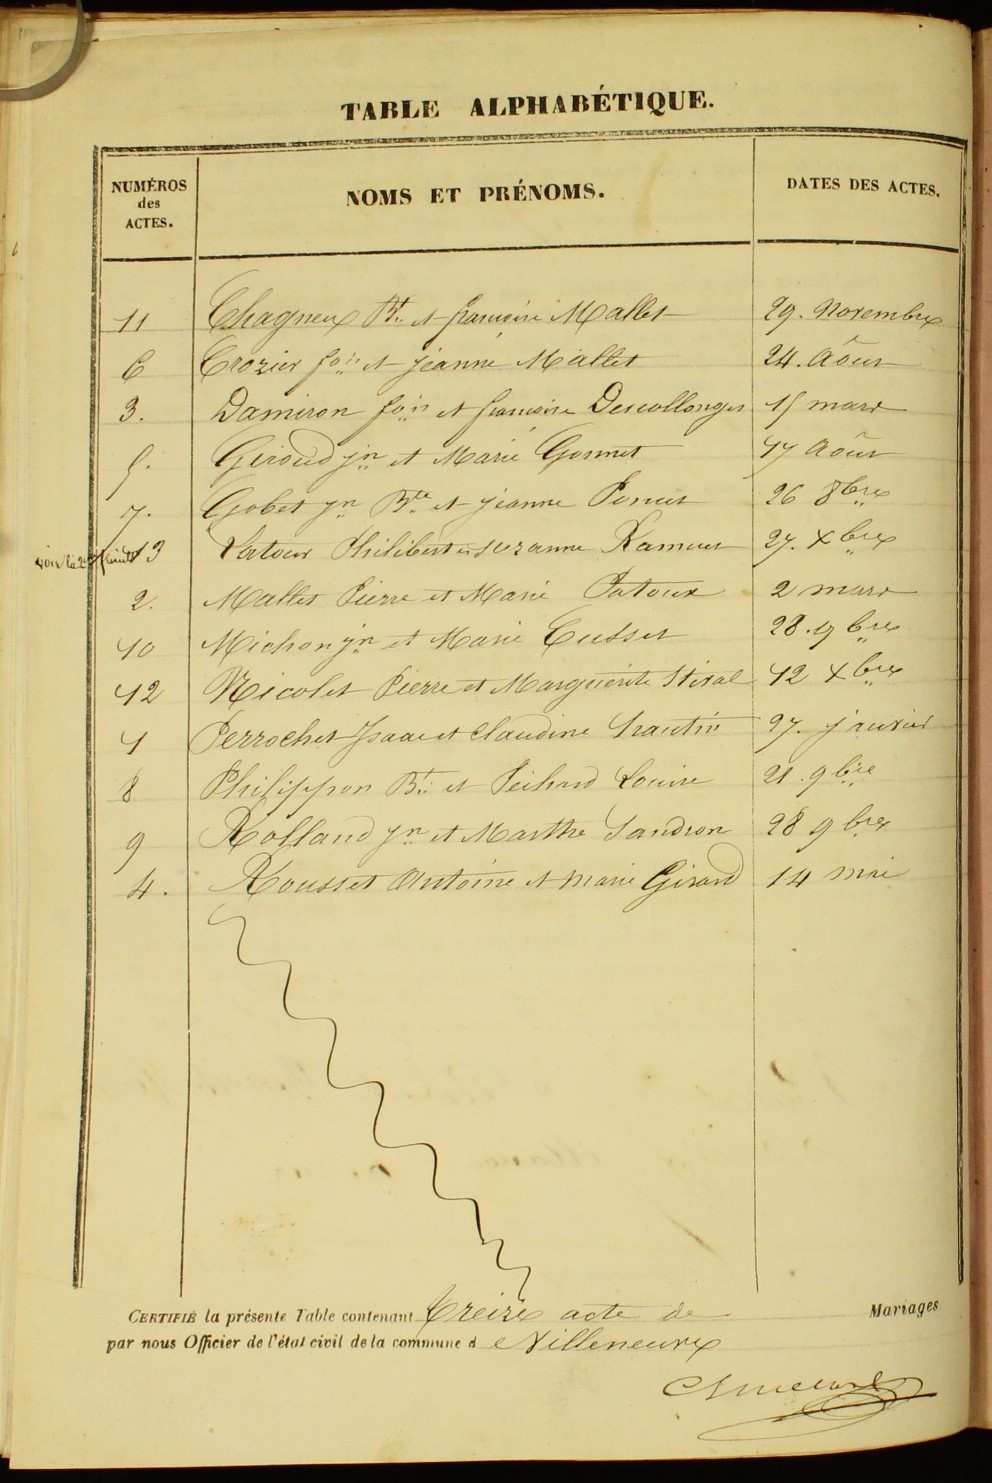 TABLE ALPHABÉTIQUE.
NUMÉROS
des
ACTES.
NOMS ET PRÉNOMS.
DATES DES ACTES.
11 Chagneux Bt et francoise Mallet 29. Novembre
6 Crozier fois et jeanne Mallet 24. Aôut
3. Damiron fois et francoise Descollonges 15 mars
5. Giroud jn et Marie Gonnet 17 Aôut
7. Gobet jn Bte et jeanne 26 8bre
voir la 2e feuille 13 Latour Philibert et suzanne 27. Xbre
2. Mallet Pierre et Marie Patoux 2 mars
10 Michon jn et Marie Cusset 28. 9bre
12 Nicolet Pierre et Marguerite 12 Xbre
1 Perrochet Isaac et Claudine 27. janvier
8 Philippon Bt et Louise 21. 9bre
9 Rolland jn et Marthe Sandron 28 9bre
4. Rousset Antoine et marie Girard 14 mai
CERTIFIÉ la présente Table contenant Treize acte de Mariages
par nous Officier de l'état civil de la commune d e Villeneuve